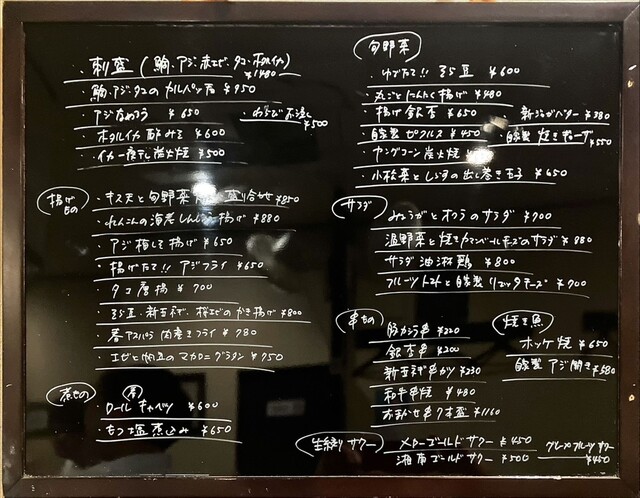 ・刺盛(鯛、アジ、赤エビ、タコ、ホタルイカ)
¥1480
・鯛、アジ、タコのカルパッチョ ¥950
・アジなめろう ¥650
・わらび 不浸し
¥500
・ホタルイカ 酢みそ ¥600
・イカ一夜干し炭火焼 ¥500
揚げもの
・キス天と旬野菜 盛り合わせ ¥850
・れんこんの海老しんじょう揚げ ¥880
・アジ梅しそ揚げ ¥650
・揚げたて!! アジフライ ¥650
・タコ唐揚 ¥700
・そら豆、新玉ネギ、桜エビのかき揚げ ¥800
・春アスパラ肉巻きフライ ¥780
・エビと帆立のマカロニグラタン ¥950
煮もの
・ロールキャベツ ¥600
・もつ塩煮込み ¥650
旬野菜
・ゆでたて!! そら豆 ¥600
・丸ごとにんにく揚げ ¥480
・揚げ銀杏 ¥650
新じゃがバター ¥380
・自家製ピクルス ¥450
・自家製 焼きチーズ
¥550
・ヤングコーン炭火焼
・小松菜としらすの出し巻き玉子 ¥650
サラダ
みょうがとオクラのサラダ ¥700
温野菜と焼きカマンベールチーズのサラダ ¥880
サラダ油淋鶏 ¥800
フルーツトマトと自家製リコッタチーズ ¥700
串もの
豚カシラ串 ¥220
銀杏串 ¥200
新玉ネギ串カツ ¥230
和牛串焼 ¥480
おまかせ串7本盛 ¥1160
焼き魚
ホッケ焼 ¥650
自家製 アジ開き ¥580
生絞りサワー
メローゴールドサワー ¥450
湘南ゴールドサワー ¥500
グレープフルーツサワー
¥450